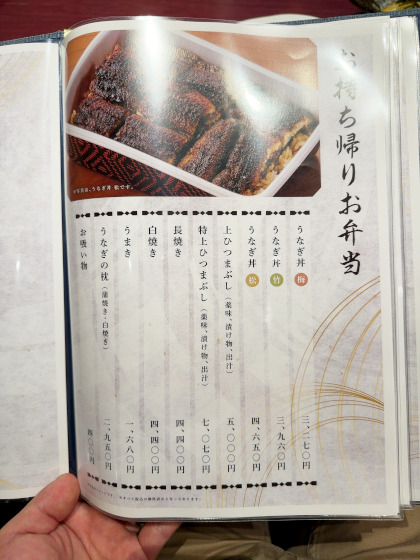 お持ち帰りお弁当
うなぎ丼 梅 三、二七〇円
うなぎ丼 竹 三、九六〇円
うなぎ丼 松 四、六五〇円
上ひつまぶし（薬味、漬け物、出汁） 五、〇〇〇円
特上ひつまぶし（薬味、漬け物、出汁） 七、〇七〇円
長焼き 四、四〇〇円
白焼き 四、四〇〇円
うまき 一、六八〇円
うなぎの枕（蒲焼き・白焼き） 二、九五〇円
お吸い物 四〇〇円
うなぎ丼 松です。